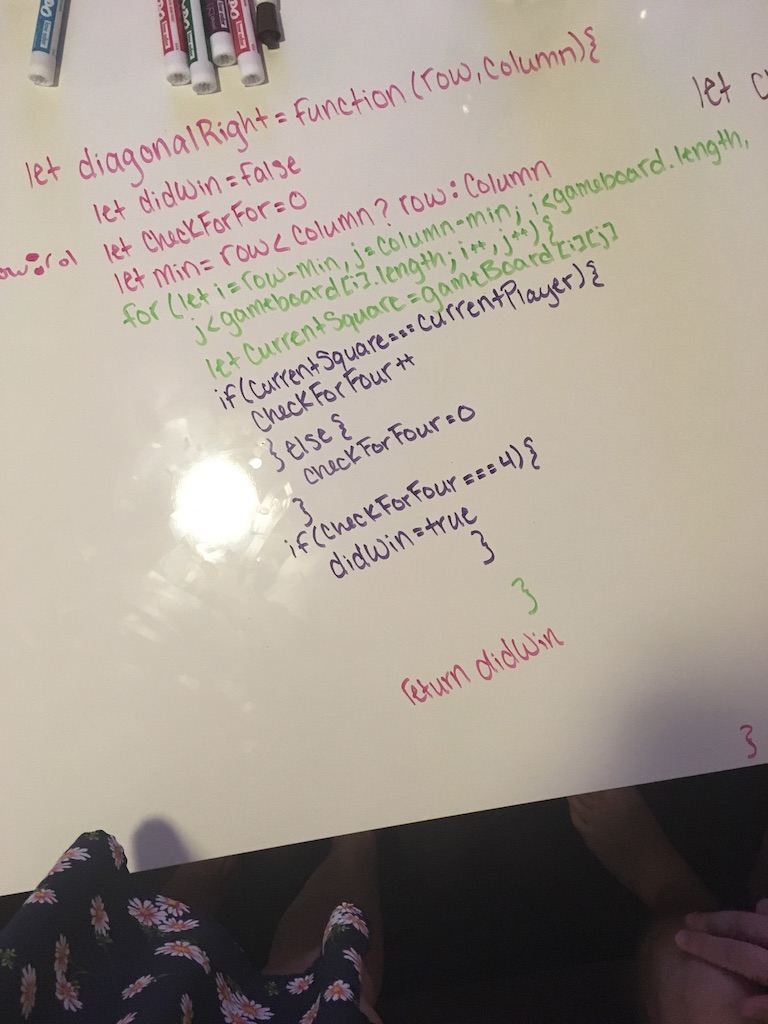 let diagonalRight = function (row, column) {
let c
let didWin = false
let checkForFor = 0
let min = row < column ? row : column
for (let i = row - min, j = column - min; i < gameboard.length,
j < gameboard[i].length; i++, j++) {
let currentSquare = gameBoard[i][j]
if (currentSquare === currentPlayer) {
checkForFour ++
} else {
checkForFour = 0
}
if (checkForFour === 4) {
didWin = true
}
}
return didWin
}